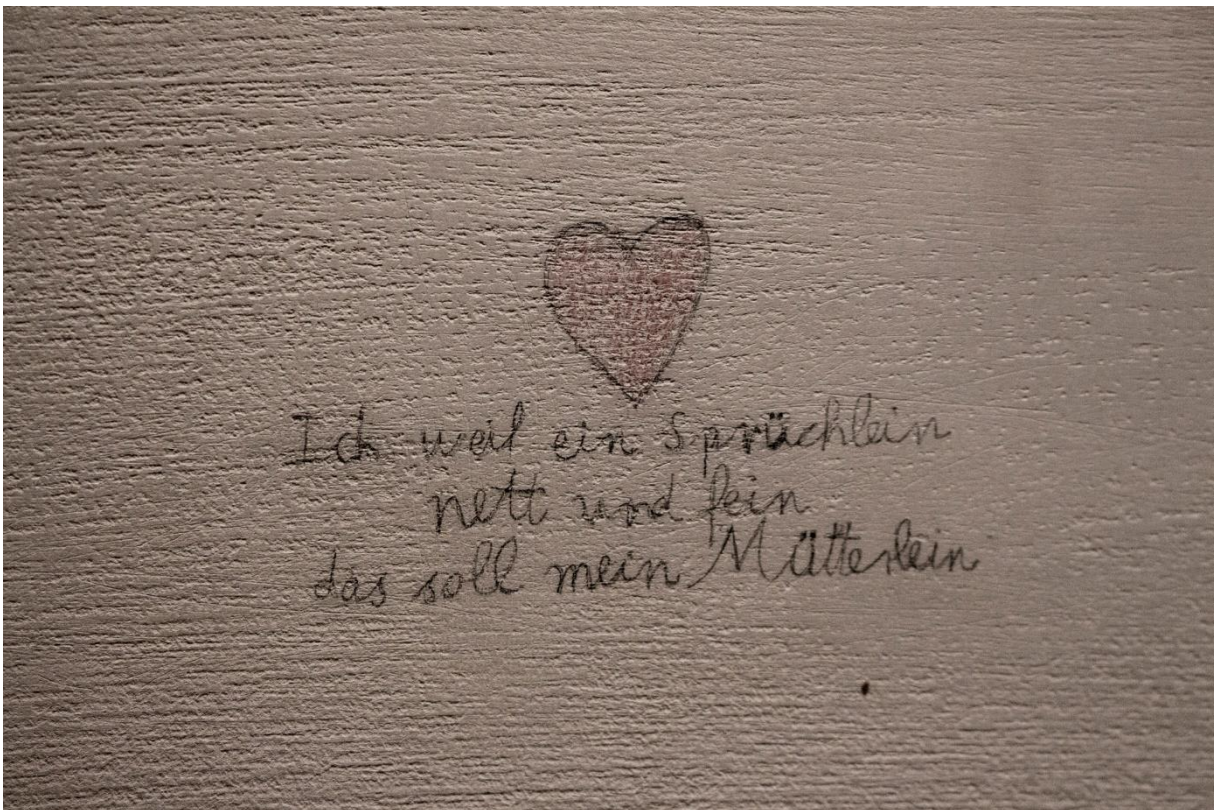 Ich weil ein Sprüchlein
nett und fein
das soll mein Mütterlein